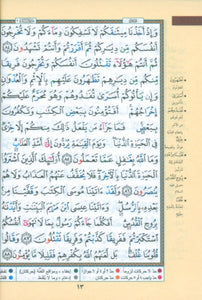 وَإِذْ أَخَذْنَا مِيثَٰقَكُمْ لَا تَسْفِكُونَ دِمَآءَكُمْ وَلَا تُخْرِجُونَ
أَنفُسَكُم مِّن دِيَٰرِكُمْ ثُمَّ أَقْرَرْتُمْ وَأَنتُمْ تَشْهَدُونَ ٨٤
ثُمَّ أَنتُمْ هَٰٓؤُلَآءِ تَقْتُلُونَ أَنفُسَكُمْ وَتُخْرِجُونَ فَرِيقًا
مِّنكُم مِّن دِيَٰرِهِمْ تَظَٰهَرُونَ عَلَيْهِم بِٱلْإِثْمِ وَٱلْعُدْوَٰنِ
وَإِن يَأْتُوكُمْ أُسَٰرَىٰ تُفَٰدُوهُمْ وَهُوَ مُحَرَّمٌ عَلَيْكُمْ
إِخْرَاجُهُمْ أَفَتُؤْمِنُونَ بِبَعْضِ ٱلْكِتَٰبِ وَتَكْفُرُونَ
بِبَعْضٍ فَمَا جَزَآءُ مَن يَفْعَلُ ذَٰلِكَ مِنكُمْ إِلَّا خِزْىٌ
فِى ٱلْحَيَوٰةِ ٱلدُّنْيَا وَيَوْمَ ٱلْقِيَٰمَةِ يُرَدُّونَ إِلَىٰٓ أَشَدِّ ٱلْعَذَابِ
وَمَا ٱللَّهُ بِغَٰفِلٍ عَمَّا تَعْمَلُونَ ٨٥ أُو۟لَٰٓئِكَ ٱلَّذِينَ ٱشْتَرَوُا۟
ٱلْحَيَوٰةَ ٱلدُّنْيَا بِٱلْءَاخِرَةِ فَلَا يُخَفَّفُ عَنْهُمُ ٱلْعَذَابُ وَلَا هُمْ
يُنصَرُونَ ٨٦ وَلَقَدْ ءَاتَيْنَا مُوسَى ٱلْكِتَٰبَ وَقَفَّيْنَا مِنۢ
بَعْدِهِۦ بِٱلرُّسُلِ وَءَاتَيْنَا عِيسَى ٱبْنَ مَرْيَمَ ٱلْبَيِّنَٰتِ وَأَيَّدْنَٰهُ
بِرُوحِ ٱلْقُدُسِ أَفَكُلَّمَا جَآءَكُمْ رَسُولٌۢ بِمَا لَا تَهْوَىٰٓ أَنفُسُكُمُ
ٱسْتَكْبَرْتُمْ فَفَرِيقًا كَذَّبْتُمْ وَفَرِيقًا تَقْتُلُونَ ٨٧ وَقَالُوا۟
قُلُوبُنَا غُلْفٌۢ بَل لَّعَنَهُمُ ٱللَّهُ بِكُفْرِهِمْ فَقَلِيلًا مَّا يُؤْمِنُونَ ٨٨
١٣